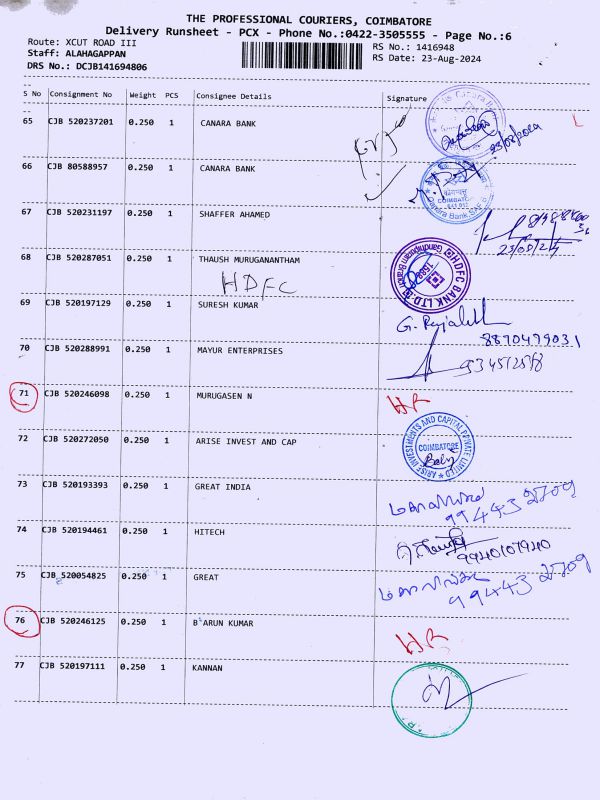 THE PROFESSIONAL COURIERS, COIMBATORE
Delivery Runsheet - PCX - Phone No.:0422-3505555 - Page No.:6
Route: XCUT ROAD III
RS No.: 1416948
Staff: ALAHAGAPPAN
RS Date: 23-Aug-2024
DRS No.: DCJB141694806
S No Consignment No Weight PCS Consignee Details Signature
65 CJB 520237201 0.250 1 CANARA BANK
23/08/2024
66 CJB 80588957 0.250 1 CANARA BANK
COIMBATORE
67 CJB 520231197 0.250 1 SHAFFER AHAMED
23/08/24
68 CJB 520287051 0.250 1 THAUSH MURUGANANTHAM
HDFC
HDFC BANK LTD.
69 CJB 520197129 0.250 1 SURESH KUMAR
8870479031
70 CJB 520288991 0.250 1 MAYUR ENTERPRISES
71 CJB 520246098 0.250 1 MURUGASEN N
72 CJB 520272050 0.250 1 ARISE INVEST AND CAP
ARISE INVESTMENTS AND CAPITAL PRIVATE LIMITED
COIMBATORE
73 CJB 520193393 0.250 1 GREAT INDIA
99443 25709
74 CJB 520194461 0.250 1 HITECH
75 CJB 520054825 0.250 1 GREAT
99443 25709
76 CJB 520246125 0.250 1 B ARUN KUMAR
77 CJB 520197111 0.250 1 KANNAN